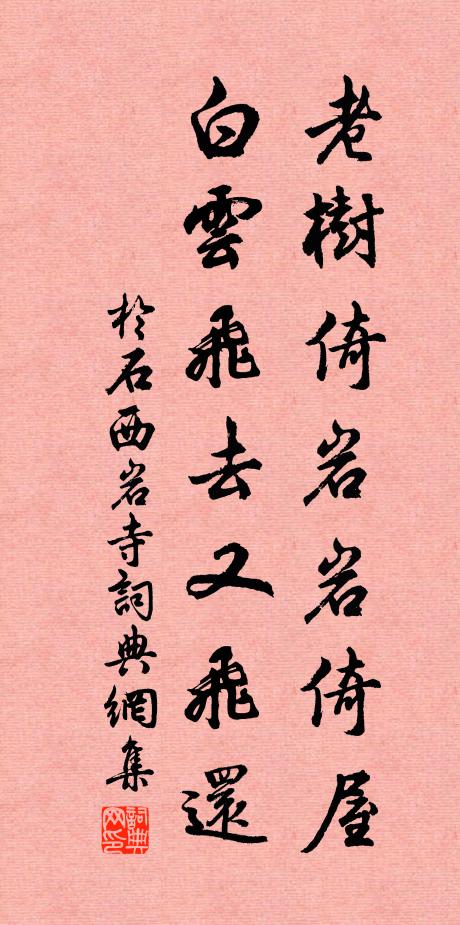 老樹倚岩岩倚屋
白雲飛去又飛還
於石西岩寺詞典網集
詞典
网印